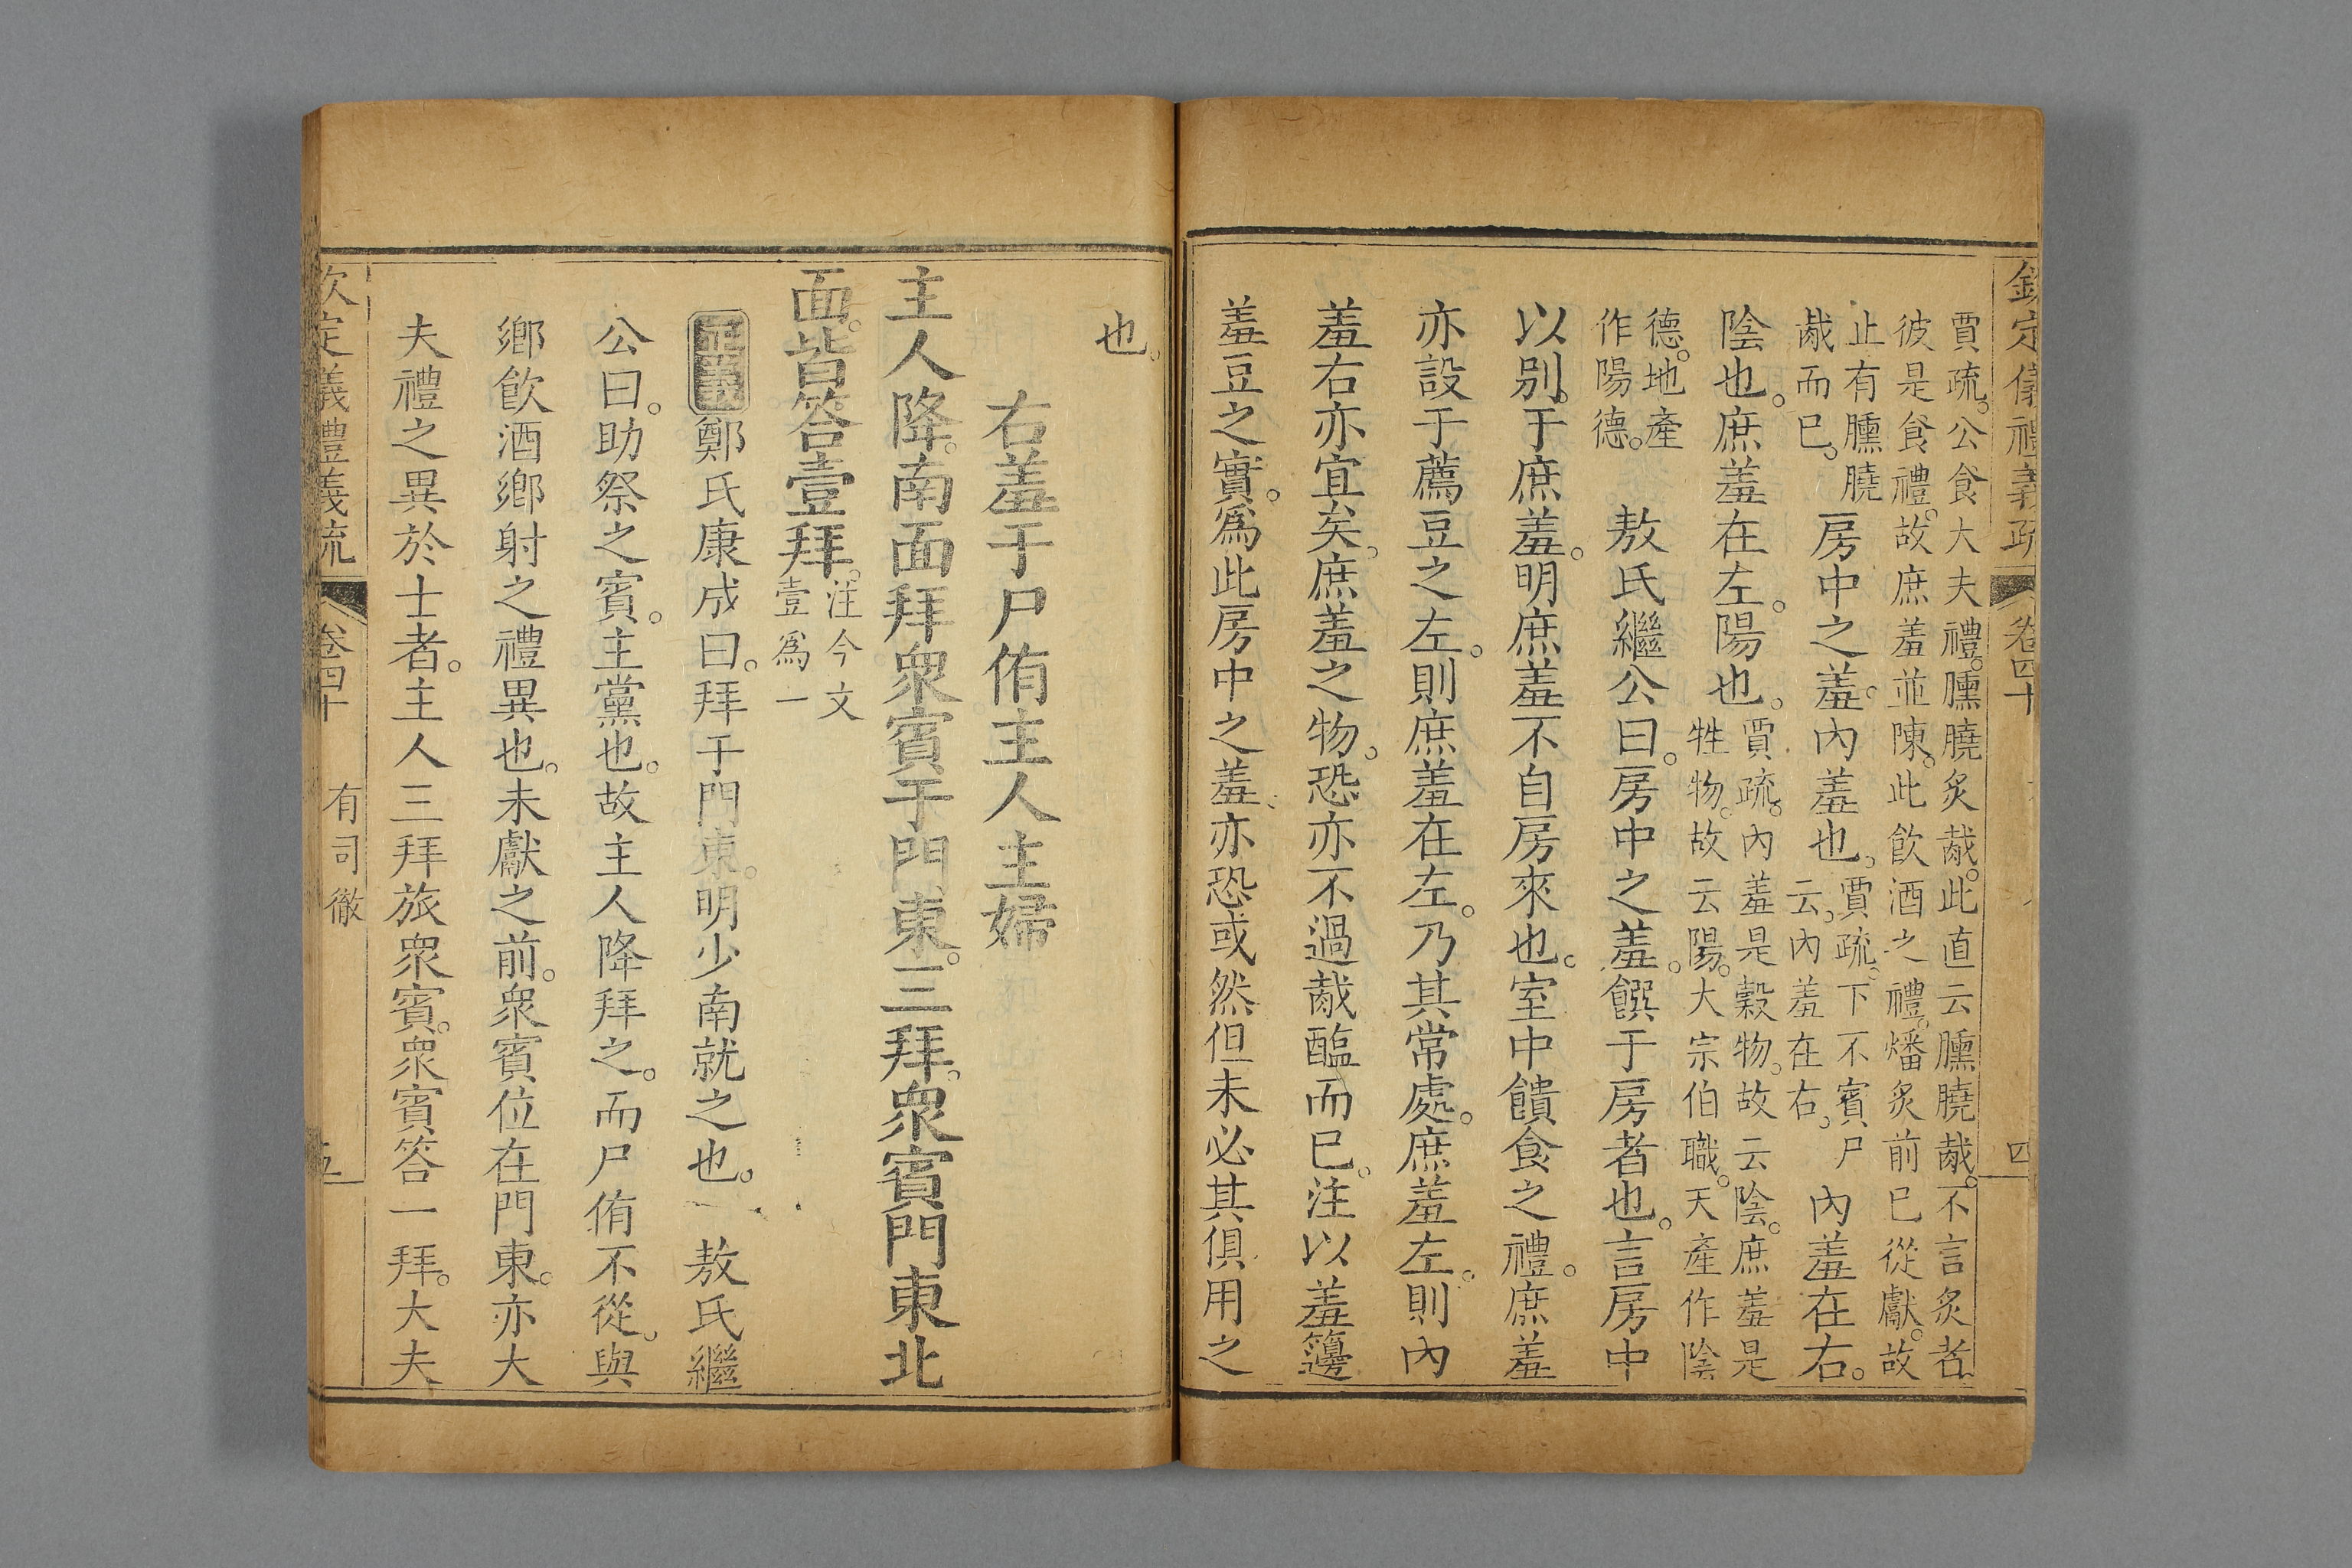 欽定儀禮義疏 卷四十 四
賈疏。公食大夫禮。臐膮炙胾。此直云臐膮胾。不言炙者。
彼是食禮。故庶羞並陳。此飲酒之禮。燔炙前已從獻。故
止有臐膮
胾而已。
房中之羞。內羞也。
賈疏。下不賓尸
云。內羞在右。
內羞在右。
陰也。庶羞在左。陽也。
賈疏。內羞是穀物。故云陰。庶羞是
牲物。故云陽。大宗伯職。天產作陰
德。地產
作陽德。
敖氏繼公曰。房中之羞。饌于房者也。言房中
以別于庶羞。明庶羞不自房來也。室中饋食之禮。庶羞
亦設于薦豆之左。則庶羞在左。乃其常處。庶羞左。則內
羞右亦宜矣。庶羞之物。恐亦不過胾醢而已。注以羞籩
羞豆之實。爲此房中之羞。亦恐或然但未必其俱用之
也。
右羞于尸侑主人主婦
主人降。南面拜衆賓于門東。三拜。衆賓門東北
面。皆答壹拜。
注今文
壹爲一
正義鄭氏康成曰。拜于門東。明少南就之也。 敖氏繼
公曰。助祭之賓。主黨也。故主人降拜之。而尸侑不從。與
鄉飲酒鄉射之禮異也。未獻之前。衆賓位在門東。亦大
夫禮之異於士者。主人三拜旅衆賓。衆賓答一拜。大夫
欽定儀禮義疏 卷四十 有司徹 五